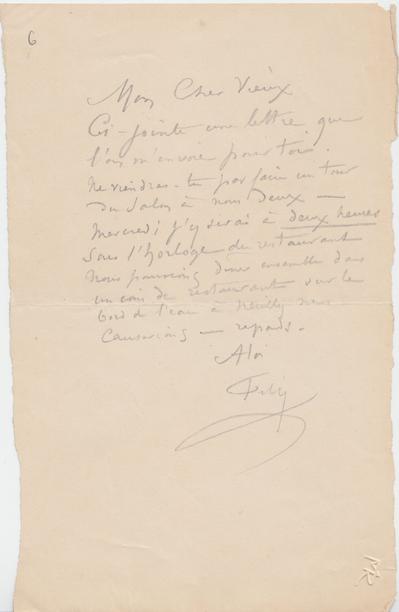 6
Mon Cher Vieux
Ci-jointe une lettre que
l'on m'envoie pour toi.
Ne viendras-tu pas faire un tour
du Salon à nous Deux —
Mercredi j'y serai à deux heures
Sous l'horloge du restaurant
Nous pourrions diner ensemble dans
un coin de restaurant sur le
bord de l'eau à Neuilly nous
Causerions — reponds.
A toi